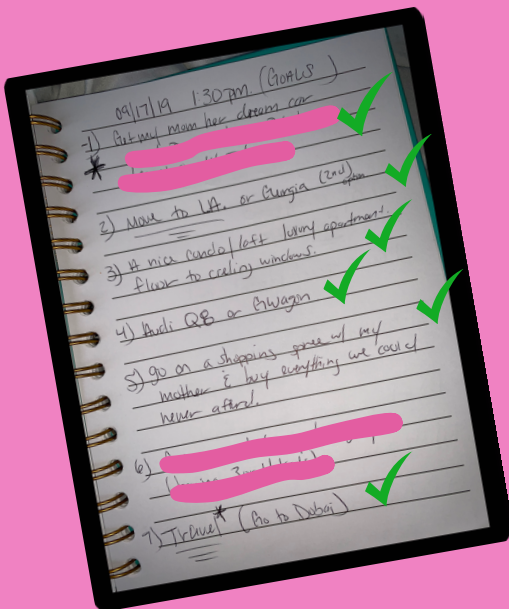 09/17/19 1:30pm (GOALS)
1) Get my mom her dream car
2) Move to LA. or Gergia (2nd)
3) A nice condo/loft luxury apartment.
floor to cieling windows.
4) Audi Q8 or Gwagon
5) go on a shopping spree w/ my
mother & buy everything we could
never afford.
6)
7) Travel* (Go to Dubai)